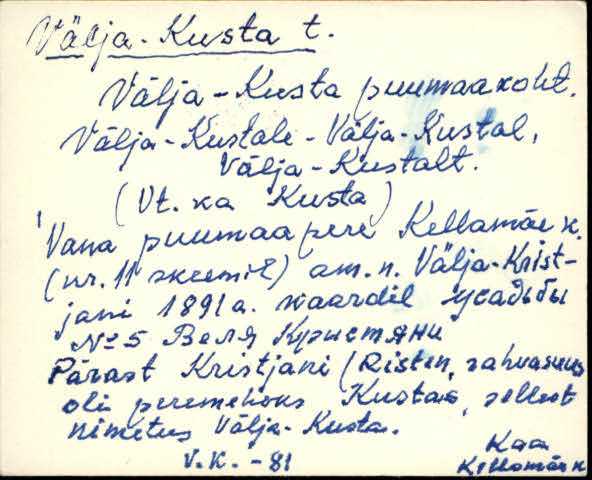 Välja-Kusta t.
Välja-Kusta puumaakoht.
Välja-Kustale - Välja-Kustal,
Välja-Kustalt.
(Vt. ka Kusta)
Vana puumaapere Kellamäe k.
(nr. 11 skeemil) am. n. Välja-Krist-
jani 1891 a. kaardil усадьбы
№ 5 Веля Кристяни
Pärast Kristjani (Risten, rahvasuus
oli peremeheks Kustas, sellest
nimetus Välja-Kusta.
V.K. - 81
Kaa
Kellamäe k